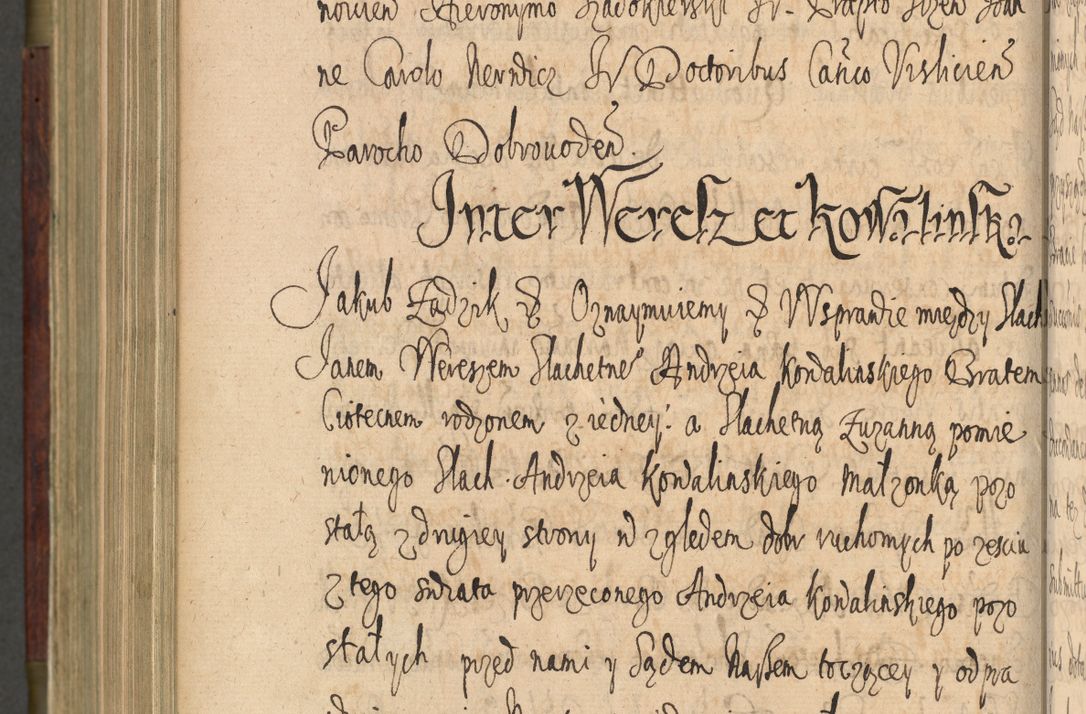 nowień Hieronymo
ne Carolo Nerwicz IV Doctoribus Cañco Vislicień
Parocho Dobrowodeń.
Inter Weresz et Kowalinsk
Jakub Zadzik & Oznaymuiemy & Wsprawie między Slach
Janem Wereszem Slachetne° Andrzeia Kowalinskiego Bratem
Ciotecnem rodzonem z iedney: a Slachetną Zuzanną pomie
nionego Slach. Andrzeia Kowalinskiego małzonką pozo
stałą z drugiey strony w zgledem dobr ruchomych po zesciu
z tego swiata przerzeconego Andrzeia Kowalinskiego pozo
stałych przed nami y Sądem Naszem toczącey y odpra